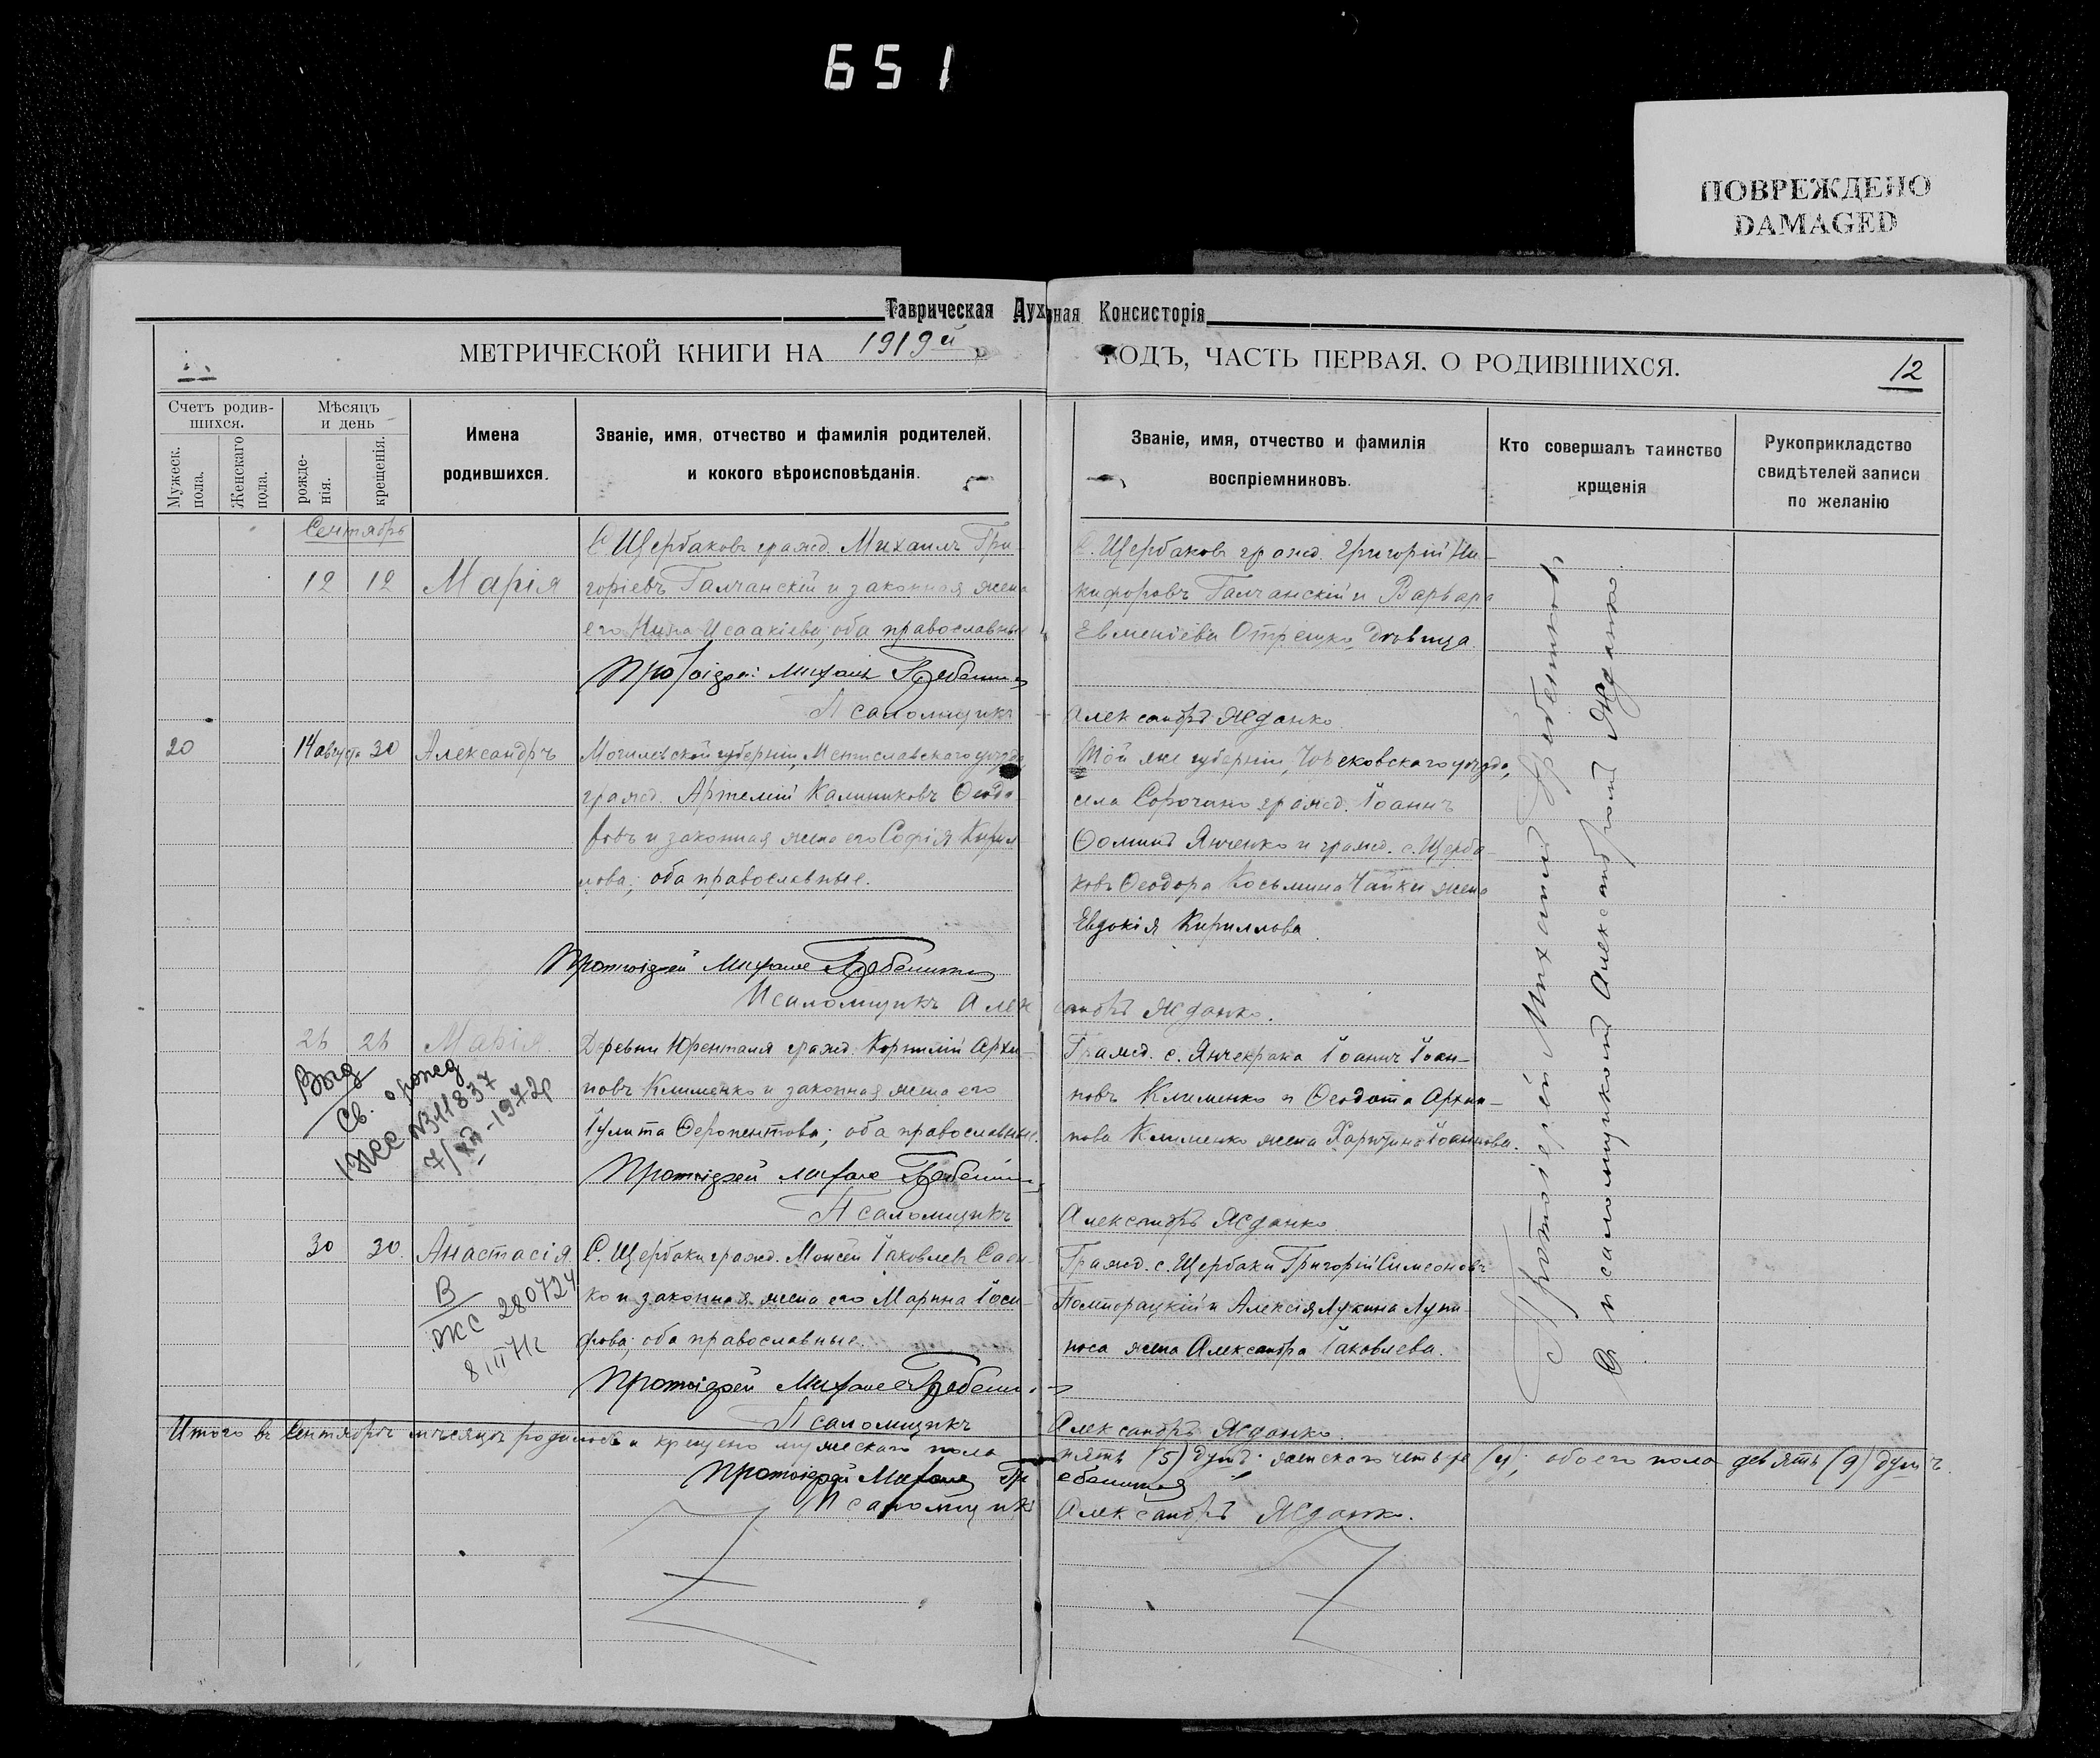 651
ПОВРЕЖДЕНО
DAMAGED
Таврическая Духовная Консисторія
МЕТРИЧЕСКОЙ КНИГИ НА 1919й ГОДЪ, ЧАСТЬ ПЕРВАЯ, О РОДИВШИХСЯ.
12
Счетъ родив-
шихся.
Мужеск.
пола.
Женскаго
пола.
Мѣсяцъ
и день
рожде-
нія.
крещенія.
Имена
родившихся.
Званіе, имя, отчество и фамилія родителей,
и кокого вѣроисповѣданія.
Званіе, имя, отчество и фамилія
воспріемниковъ.
Кто совершалъ таинство
крщенія
Рукоприкладство
свидѣтелей записи
по желанію
Сентябрь
12 12 Марія
С. Щербаковъ гражд. Михаилъ Гри-
горіевъ Галчанскій и законная жена
его Нина Исаакіева; оба православные
С. Щербаковъ гражд. Григорій Ни-
кифоровъ Галчанскій и Варвара
Евменіева Отрешко, дѣвица.
Протоіерей Михаилъ Гребенников
Псаломщикъ Александръ Жданко
20 14 августа 30 Александръ
Могилевской губерніи, Мстиславскаго уѣзда
гражд. Артемій Калиниковъ Ѳеодо-
ровъ и законная жена его Софія Кирил-
лова; оба православные.
Той же губерніи, Чаусковскаго уѣзда,
села Сорочино гражд. Іоаннъ
Ѳоминъ Янченко и гражд. с. Щерба-
ковъ Ѳеодора Косьмина Чайки жена
Евдокія Кириллова.
Протоіерей Михаилъ Гребенников
Псаломщикъ Александръ Жданко.
26 26 Марія.
Деревни Юренталя гражд. Корнилій Архи-
повъ Клименко и законная жена его
Іулита Ѳерапонтова; оба православные.
Гражд. с. Янчекрака Іоаннъ Іоан-
новъ Клименко и Ѳеодота Архип-
пова Клименко жена Харитина Іоаннова.
Выд
Св. о рожд
ІЖС №311837
7/XII-1972г
Протоіерей Михаилъ Гребенников
Псаломщикъ Александръ Жданко
30 30. Анастасія
С. Щербаки гражд. Моисей Іаковлевъ Саен-
ко и законная жена его Марина Іоси-
фова; оба православные.
Гражд. с. Щербаки Григорій Симеоновъ
Полторацкій и Алексія Лукина Лупи-
носа жена Александра Іаковлева.
В
ЖС 280724
8 III 71г
Протоіерей Михаилъ Гребенников
Псаломщикъ Александръ Жданко.
Итого въ Сентябрѣ мѣсяцѣ родилось и крещено мужескаго пола пять (5) душъ; женскаго четыре (4); обоего пола девять (9) душъ.
Протоіерей Михаилъ Гребенников
Псаломщикъ Александръ Жданко.
Протоіерей Михаилъ Гребенников
съ псаломщикомъ Александромъ Жданко.